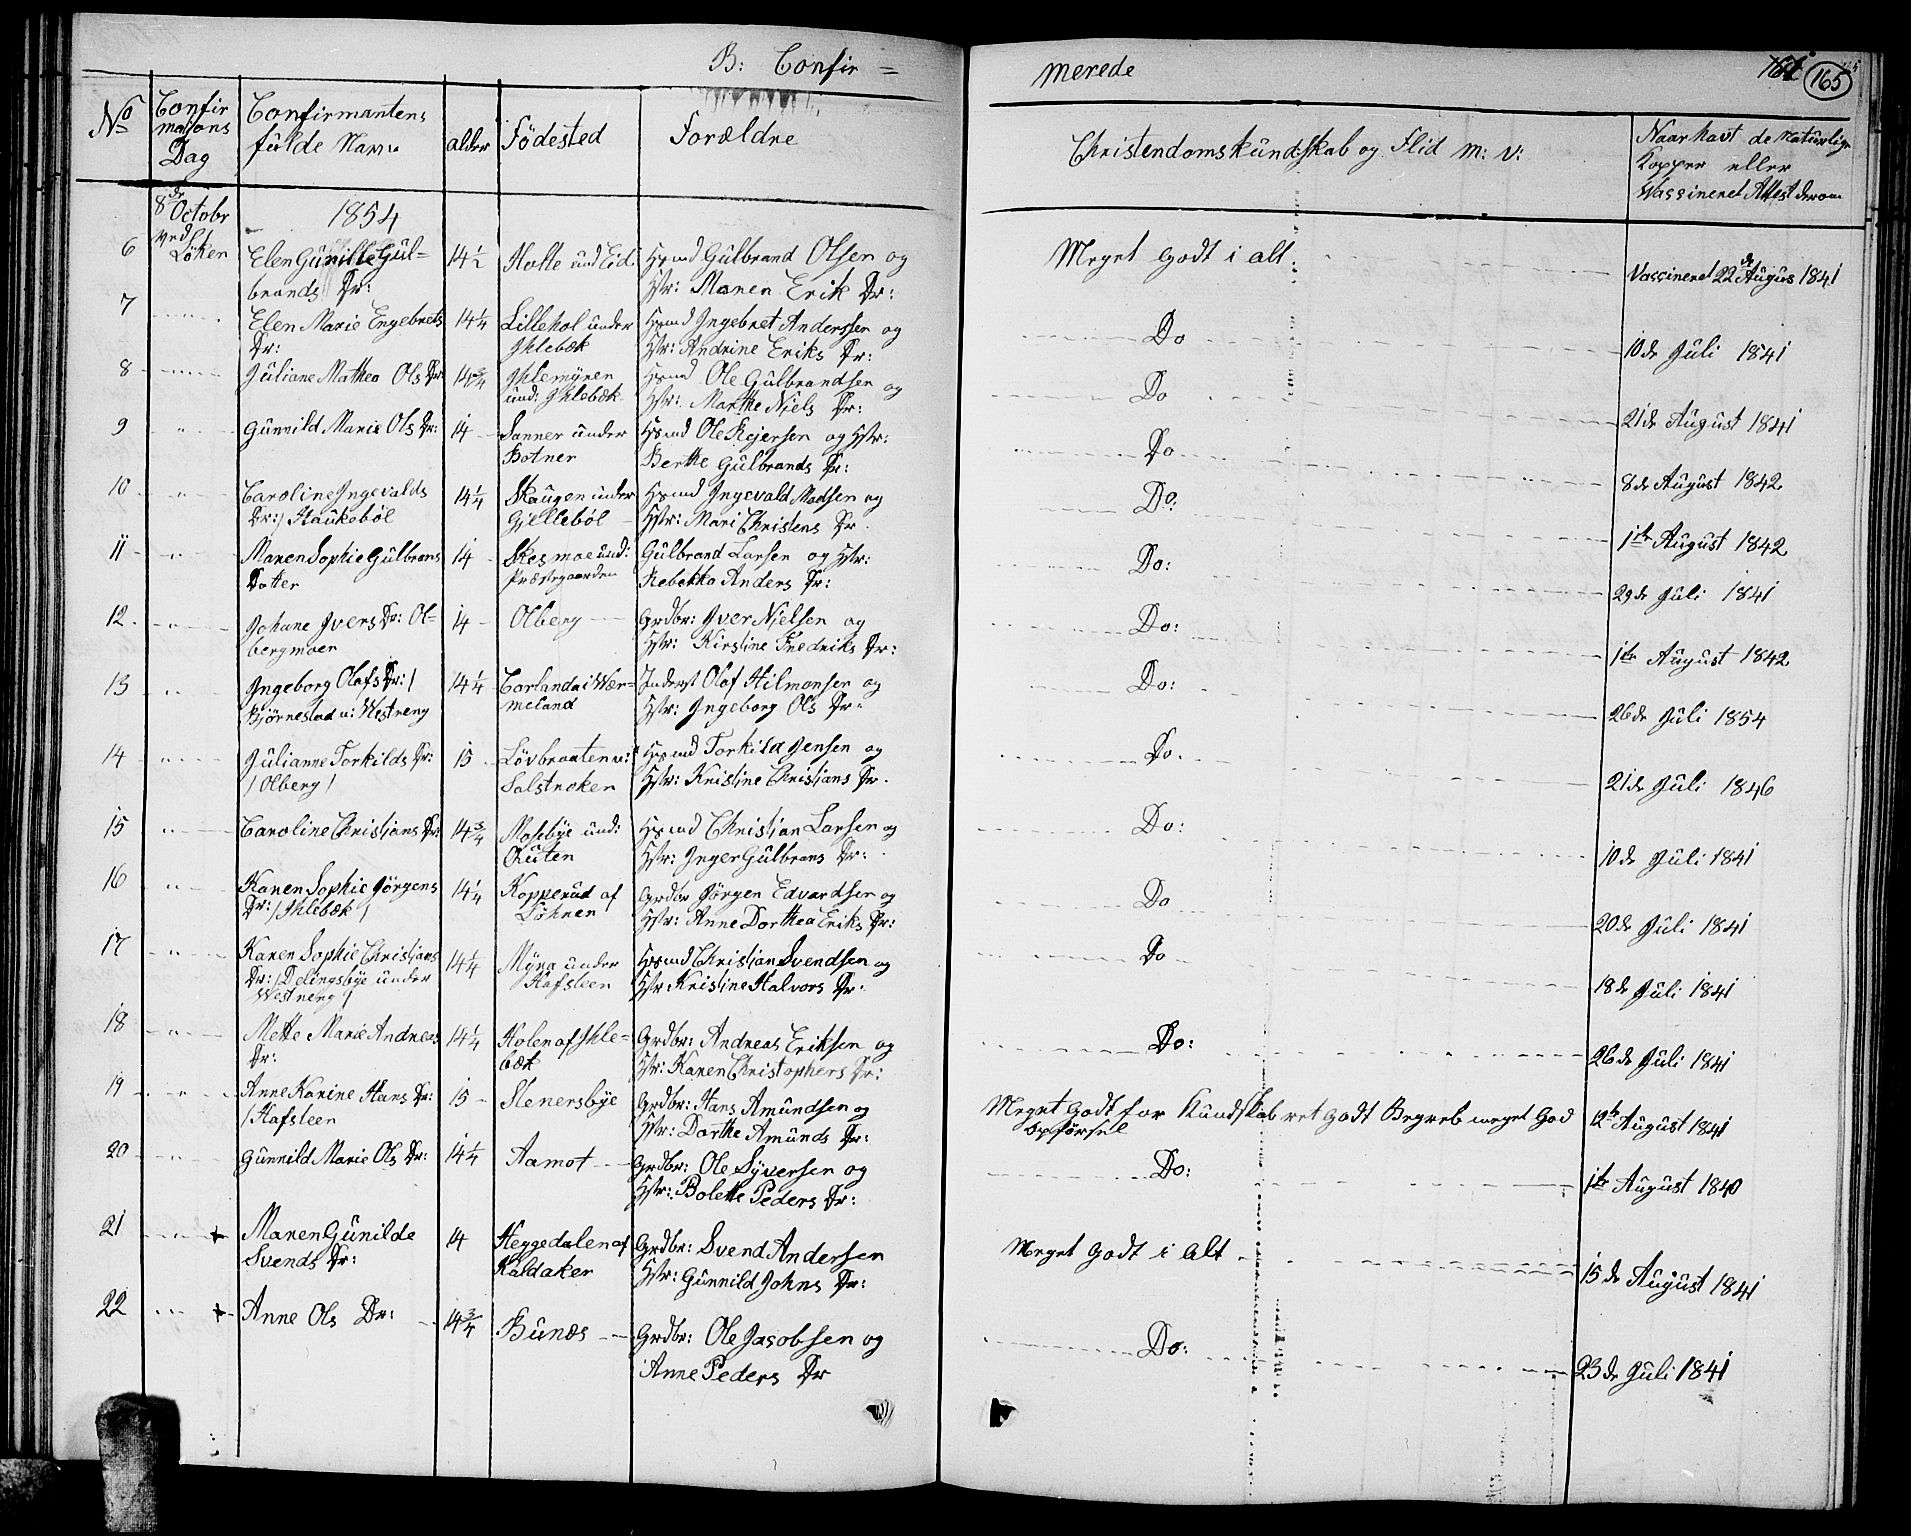 B: Confir = merede
164 165
No
Confir
mations
Dag
Confirmantens
fulde Navn
alder
Födested
Forældre
Christendomskundskab og Flid m: v:
Naar havt de Naturlige
Kopper eller
Vassineret Attest derom
8de Octobr
ved
Löken
1854
6 Elen Gunille Gul=
brands Dr:
14 1/2
Holte und Eid.
Hsmd Gulbrand Olsen og
Hstr: Maren Erik Dr:
Meget godt i alt.
Vassineret 22de Augus 1841
7 Elen Marie Engebrets
Dr:
14 1/4
Lillehol under
Ihlebæk
Hsmd Ingebret Anderssen og
Hstr: Andrine Eriks Dr:
Do
10de Juli 1841
8 Juliane Mathea Ols Dr
14 3/4
Ihlemÿren
und: Ihlebæk
Hsmd Ole Gulbrandsen og
Hstr: Marthe Niels Dr:
Do
21de August 1841
9 " Gunnild Marie Ols Dr:
14
Sanner under
Botner
Hsmd Ole Rejersen og Hstr:
Berthe Gulbrands Dr:
Do
8de August 1842
10 " Caroline Ingevalds
Dr: / Haukeböl
14 1/4
Skaugen under
Gjelleböl
Hsmd Ingevald Madsen og
Hstr: Mari Christens Dr.
Do:
1ste August 1842
11 " Maren Sophie Gulbrans
Datter
14
Skesmoe und:
Præstegaarden
Gulbrand Larsen og Hstr:
Rebekka Anders Dr:
Do:
29de Juli 1841
12. " Johane Ivers Dr: Ol=
bergmoen
14
Olberg
Grdbr: Iver Nielsen og
Hstr: Kirstine Fredriks Dr:
Do:
1ste August 1842
13 " Ingeborg Olafs Dr: /
Bjørnestad u: Westreng
14 1/4
Carlanda i Wær=
meland
Inderst Olaf Hilmansen og
Hstr: Ingeborg Ols Dr:
Do:
26de Juli 1854
14 " Julianne Torkilds Dr:
/ Olberg /
15
Lövbraaten u:
Salstroken
Hsmd Torkild Jensen og
Hstr: Kristine Christians Dr.
Do.
21de Juli 1846
15 " Caroline Christians Dr:
14 3/4
Mosebÿe und:
Ruten
Hsmd Christian Larsen og
Hstr: Inger Gulbrans Dr:
Do:
10de Juli 1841
16 " Karen Sophie Jörgens
Dr: / Ihlebæk /
14 1/4
Kopperud af
Löhren
Grdbr Jörgen Edvardsen og
Hstr: Anne Dorthea Eriks Dr:
Do
20de Juli 1841
17 " Karen Sophie Christians
Dr: / Delingsbÿe under
Westreng /
14 1/4
Mÿra under
Hafsteen
Hsmd Christian Svendsen og
Hstr Kristine Halvors Dr.
Do
18de Juli 1841
18 " Mette Marie Andreas
Dr:
14 1/4
Holen af Ihle=
bæk
Grdbr: Andreas Eriksen og
Hstr: Karen Christophers Dr:
Do:
26de Juli 1841
19 " Anne Karine Hans Dr:
/ Hafsteen
15
Stenersbÿe
Grdbr: Hans Amundsen og
Hstr: Dorthe Amunds Dr:
Meget Godt for Kundskab ret godt Begreb meget God
opförsel
12te August 1841
20 " Gunnild Marie Ols Dr:
14 1/4
Aamot
Grdbr: Ole Sÿversen og
Hstr: Bolette Peders Dr:
Do:
1ste August 1840
21 + Maren Gunilde
Svends Dr:
14
Heggedalen af
Kaldaker
Grdbr: Svend Andersen
Hstr: Gunnild Johns Dr:
Meget Godt i alt
15de August 1841
22 + Anne Ols Dr:
14 3/4
Bunæs
Grdbr: Ole Jacobsen og
Anne Peders Dr
Do:
23de Juli 1841